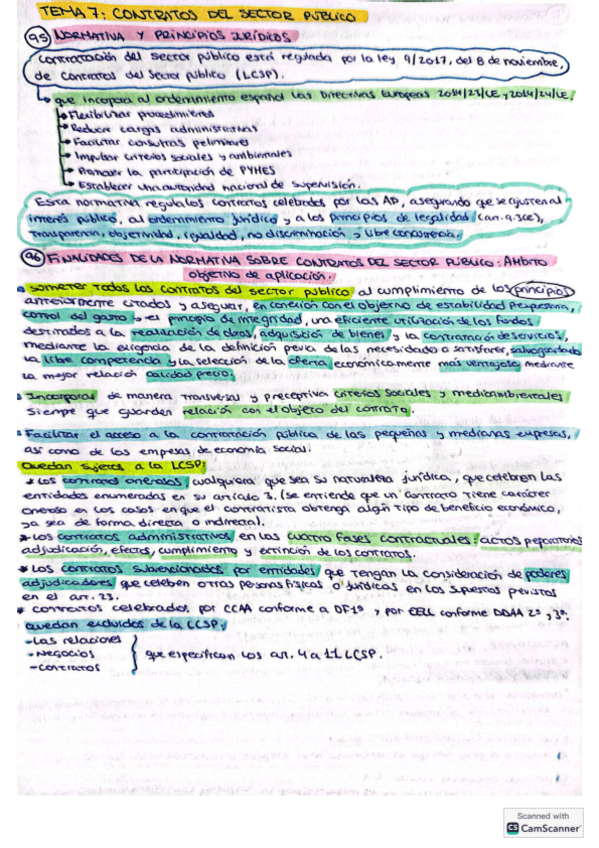 TEMA 7: CONTRATOS DEL SECTOR PÚBLICO
95 NORMATIVA Y PRINCIPIOS JURÍDICOS
Contratación del sector público está regulada por la ley 9/2017, del 8 de noviembre,
de Contratos del Sector Público (LCSP).
que incorpora al ordenamiento español las Directivas Europeas 2014/23/UE y 2014/24/UE.
Flexibilizar procedimientos
Reducir cargas administrativas
Facilitar consultas preliminares
Impulsar criterios sociales y ambientales
Promover la participación de PYMES
Establecer una autoridad nacional de supervisión.
Esta normativa regula los contratos celebrados por las AP, asegurando que se ajusten al
interés público, al ordenamiento jurídico y a los principios de legalidad (art. 9.3CE),
transparencia, objetividad, igualdad, no discriminación y libre concurrencia.
96 FINALIDADES DE LA NORMATIVA SOBRE CONTRATOS DEL SECTOR PÚBLICO: Ámbito
objetivo de aplicación.
Someter todos los contratos del sector público al cumplimiento de los principios
anteriormente citados y asegurar, en conexión con el objetivo de estabilidad presupuestaria,
control del gasto y el principio de integridad, una eficiente utilización de los fondos
destinados a la realización de obras, adquisición de bienes y la contratación de servicios,
mediante la exigencia de la definición previa de las necesidades a satisfacer, salvaguardando
la libre competencia y la selección de la oferta económicamente más ventajosa mediante
la mejor relación calidad precio.
Incorporar de manera transversal y preceptiva criterios sociales y medioambientales
siempre que guarden relación con el objeto del contrato.
Facilitar el acceso a la contratación pública de las pequeñas y medianas empresas,
así como de las empresas de economía social.
Quedan sujetos a la LCSP:
* Los contratos onerosos, cualquiera que sea su naturaleza jurídica, que celebren las
entidades enumeradas en su artículo 3. (se entiende que un contrato tiene carácter
oneroso en los casos en que el contratista obtenga algún tipo de beneficio económico,
ya sea de forma directa o indirecta).
* Los contratos administrativos, en las cuatro fases contractuales: actos preparatorios,
adjudicación, efectos, cumplimiento y extinción de los contratos.
* Los contratos subvencionados por entidades que tengan la consideración de poderes
adjudicadores que celeben otras personas físicas o jurídicas en los supuestos previstos
en el art. 23.
* Contratos celebrados, por CCAA conforme a DF1ª y por EELL conforme DDAA 2ª y 3ª.
Quedan excluidos de la LCSP:
- Las relaciones
- Negocios
- Contratos
que especifican los art. 4 a 11 LCSP.
Scanned with
CS CamScanner